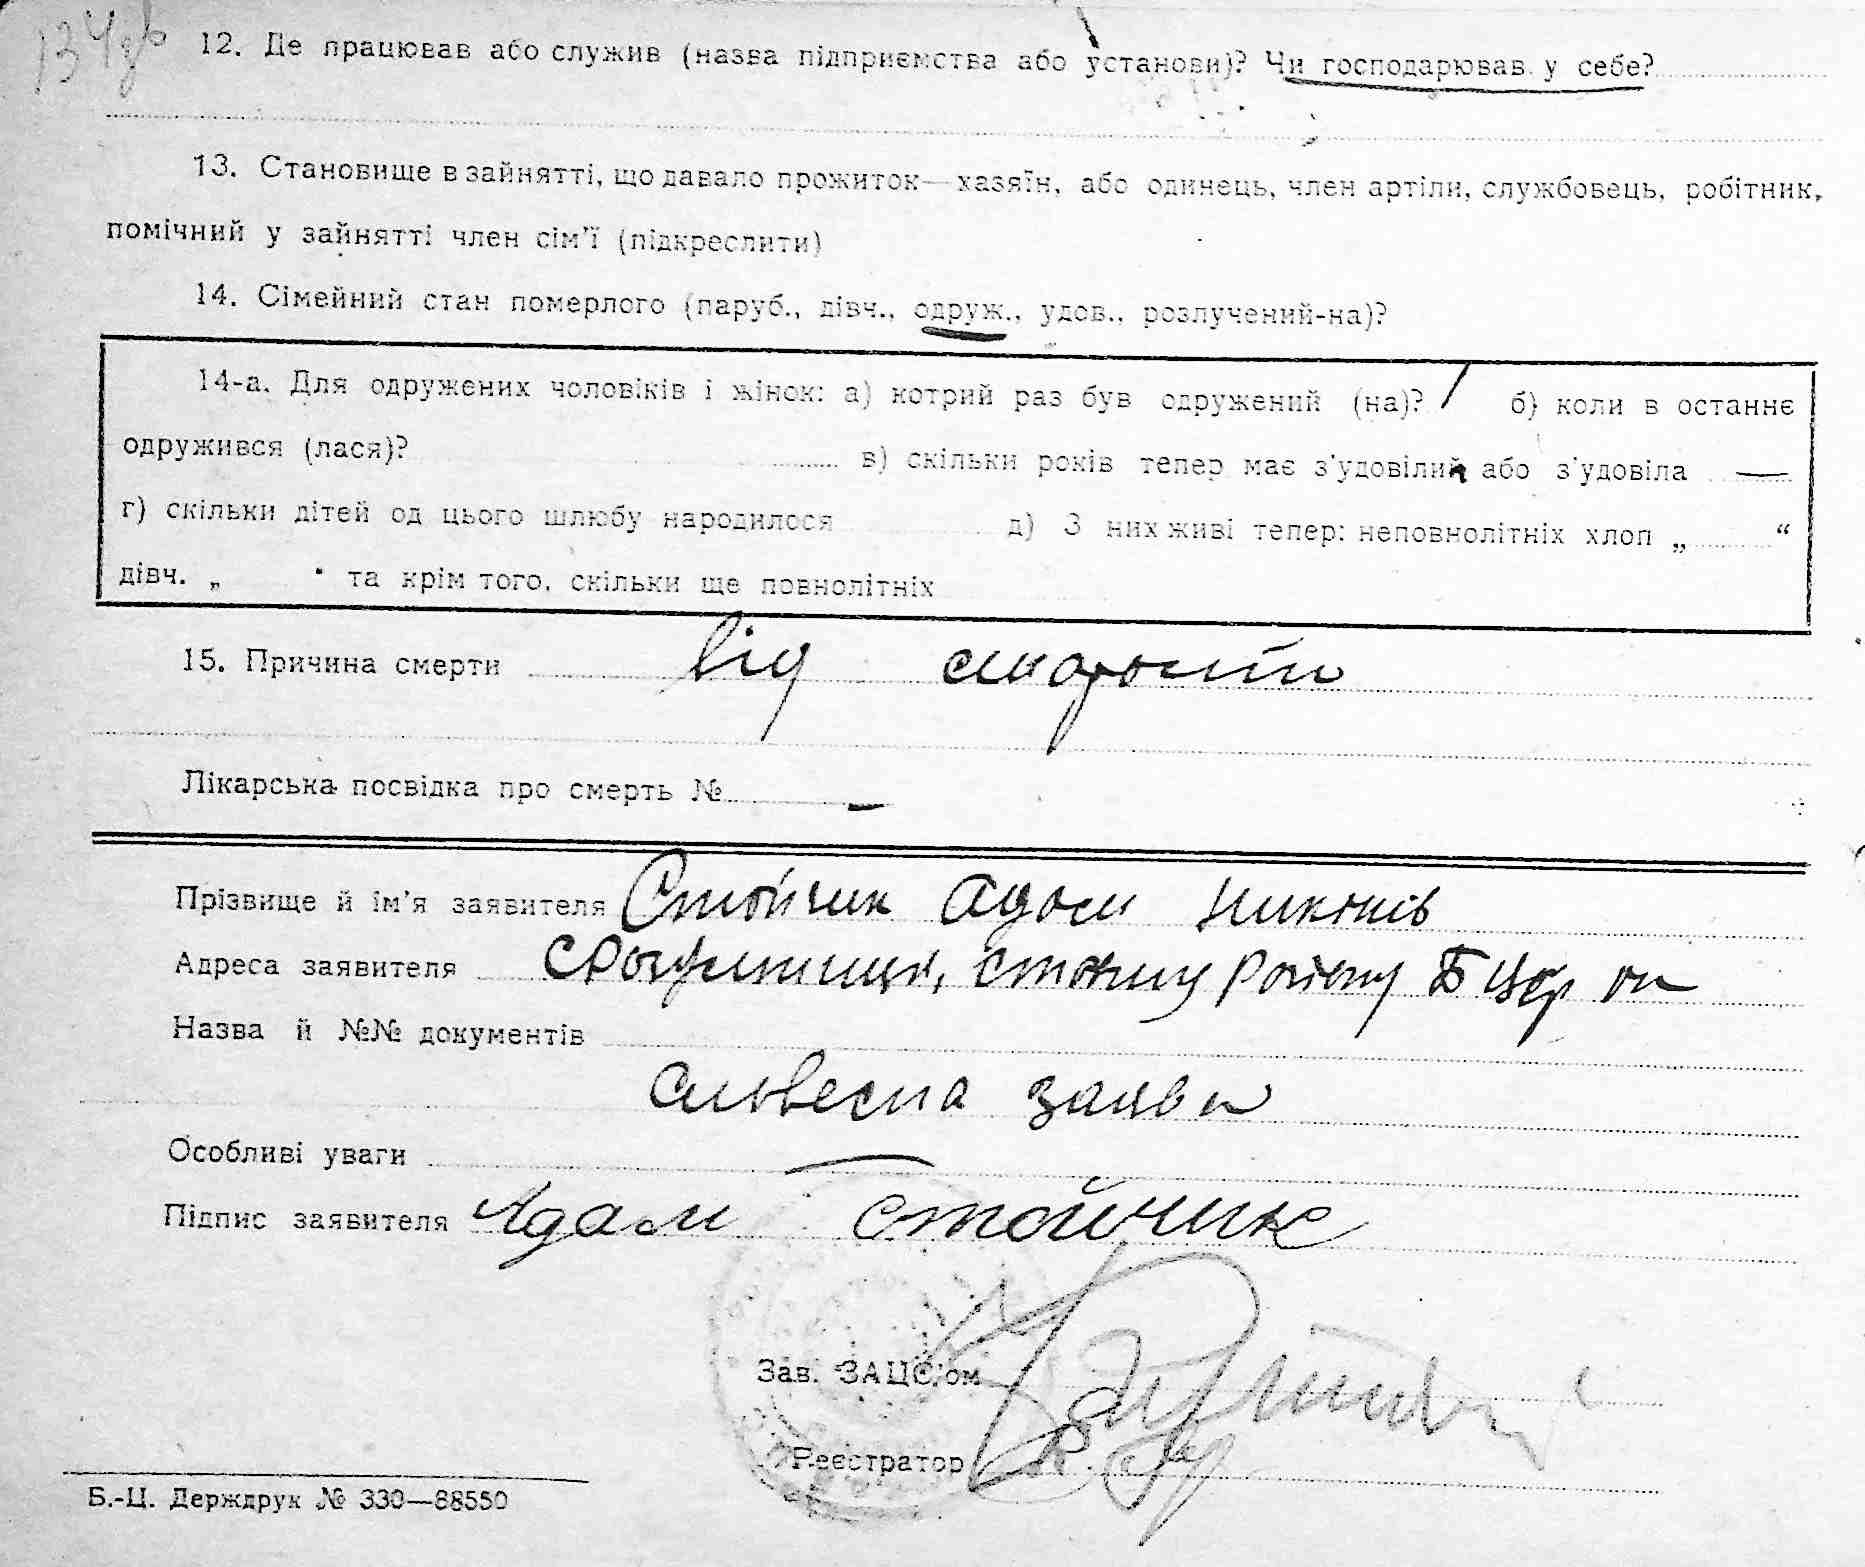 134зв
12. Де працював або служив (назва підприємства або установи)? Чи господарював у себе?
13. Становище в зайнятті, що давало прожиток—хазяїн, або одинець, член артіли, службовець, робітник,
помічний у зайнятті член сім'ї (підкреслити)
14. Сімейний стан померлого (паруб., дівч., одруж., удов., розлучений-на)?
14-а. Для одружених чоловіків і жінок: а) котрий раз був одружений (на)? 1 б) коли в останнє
одружився (лася)? в) скільки років тепер має з'удовілий або з'удовіла —
г) скільки дітей од цього шлюбу народилося д) З них живі тепер: неповнолітніх хлоп „ “
дівч. „ “ та крім того, скільки ще повнолітніх
15. Причина смерти від старости
Лікарська посвідка про смерть № —
Прізвище й ім'я заявителя Стойчик Адам Никонів
Адреса заявителя району БЦер
Назва й №№ документів
словесна заява
Особливі уваги —
Підпис заявителя Адам Стойчик
Зав. ЗАЦС'ом
Реєстратор
Б.-Ц. Держдрук № 330—88550